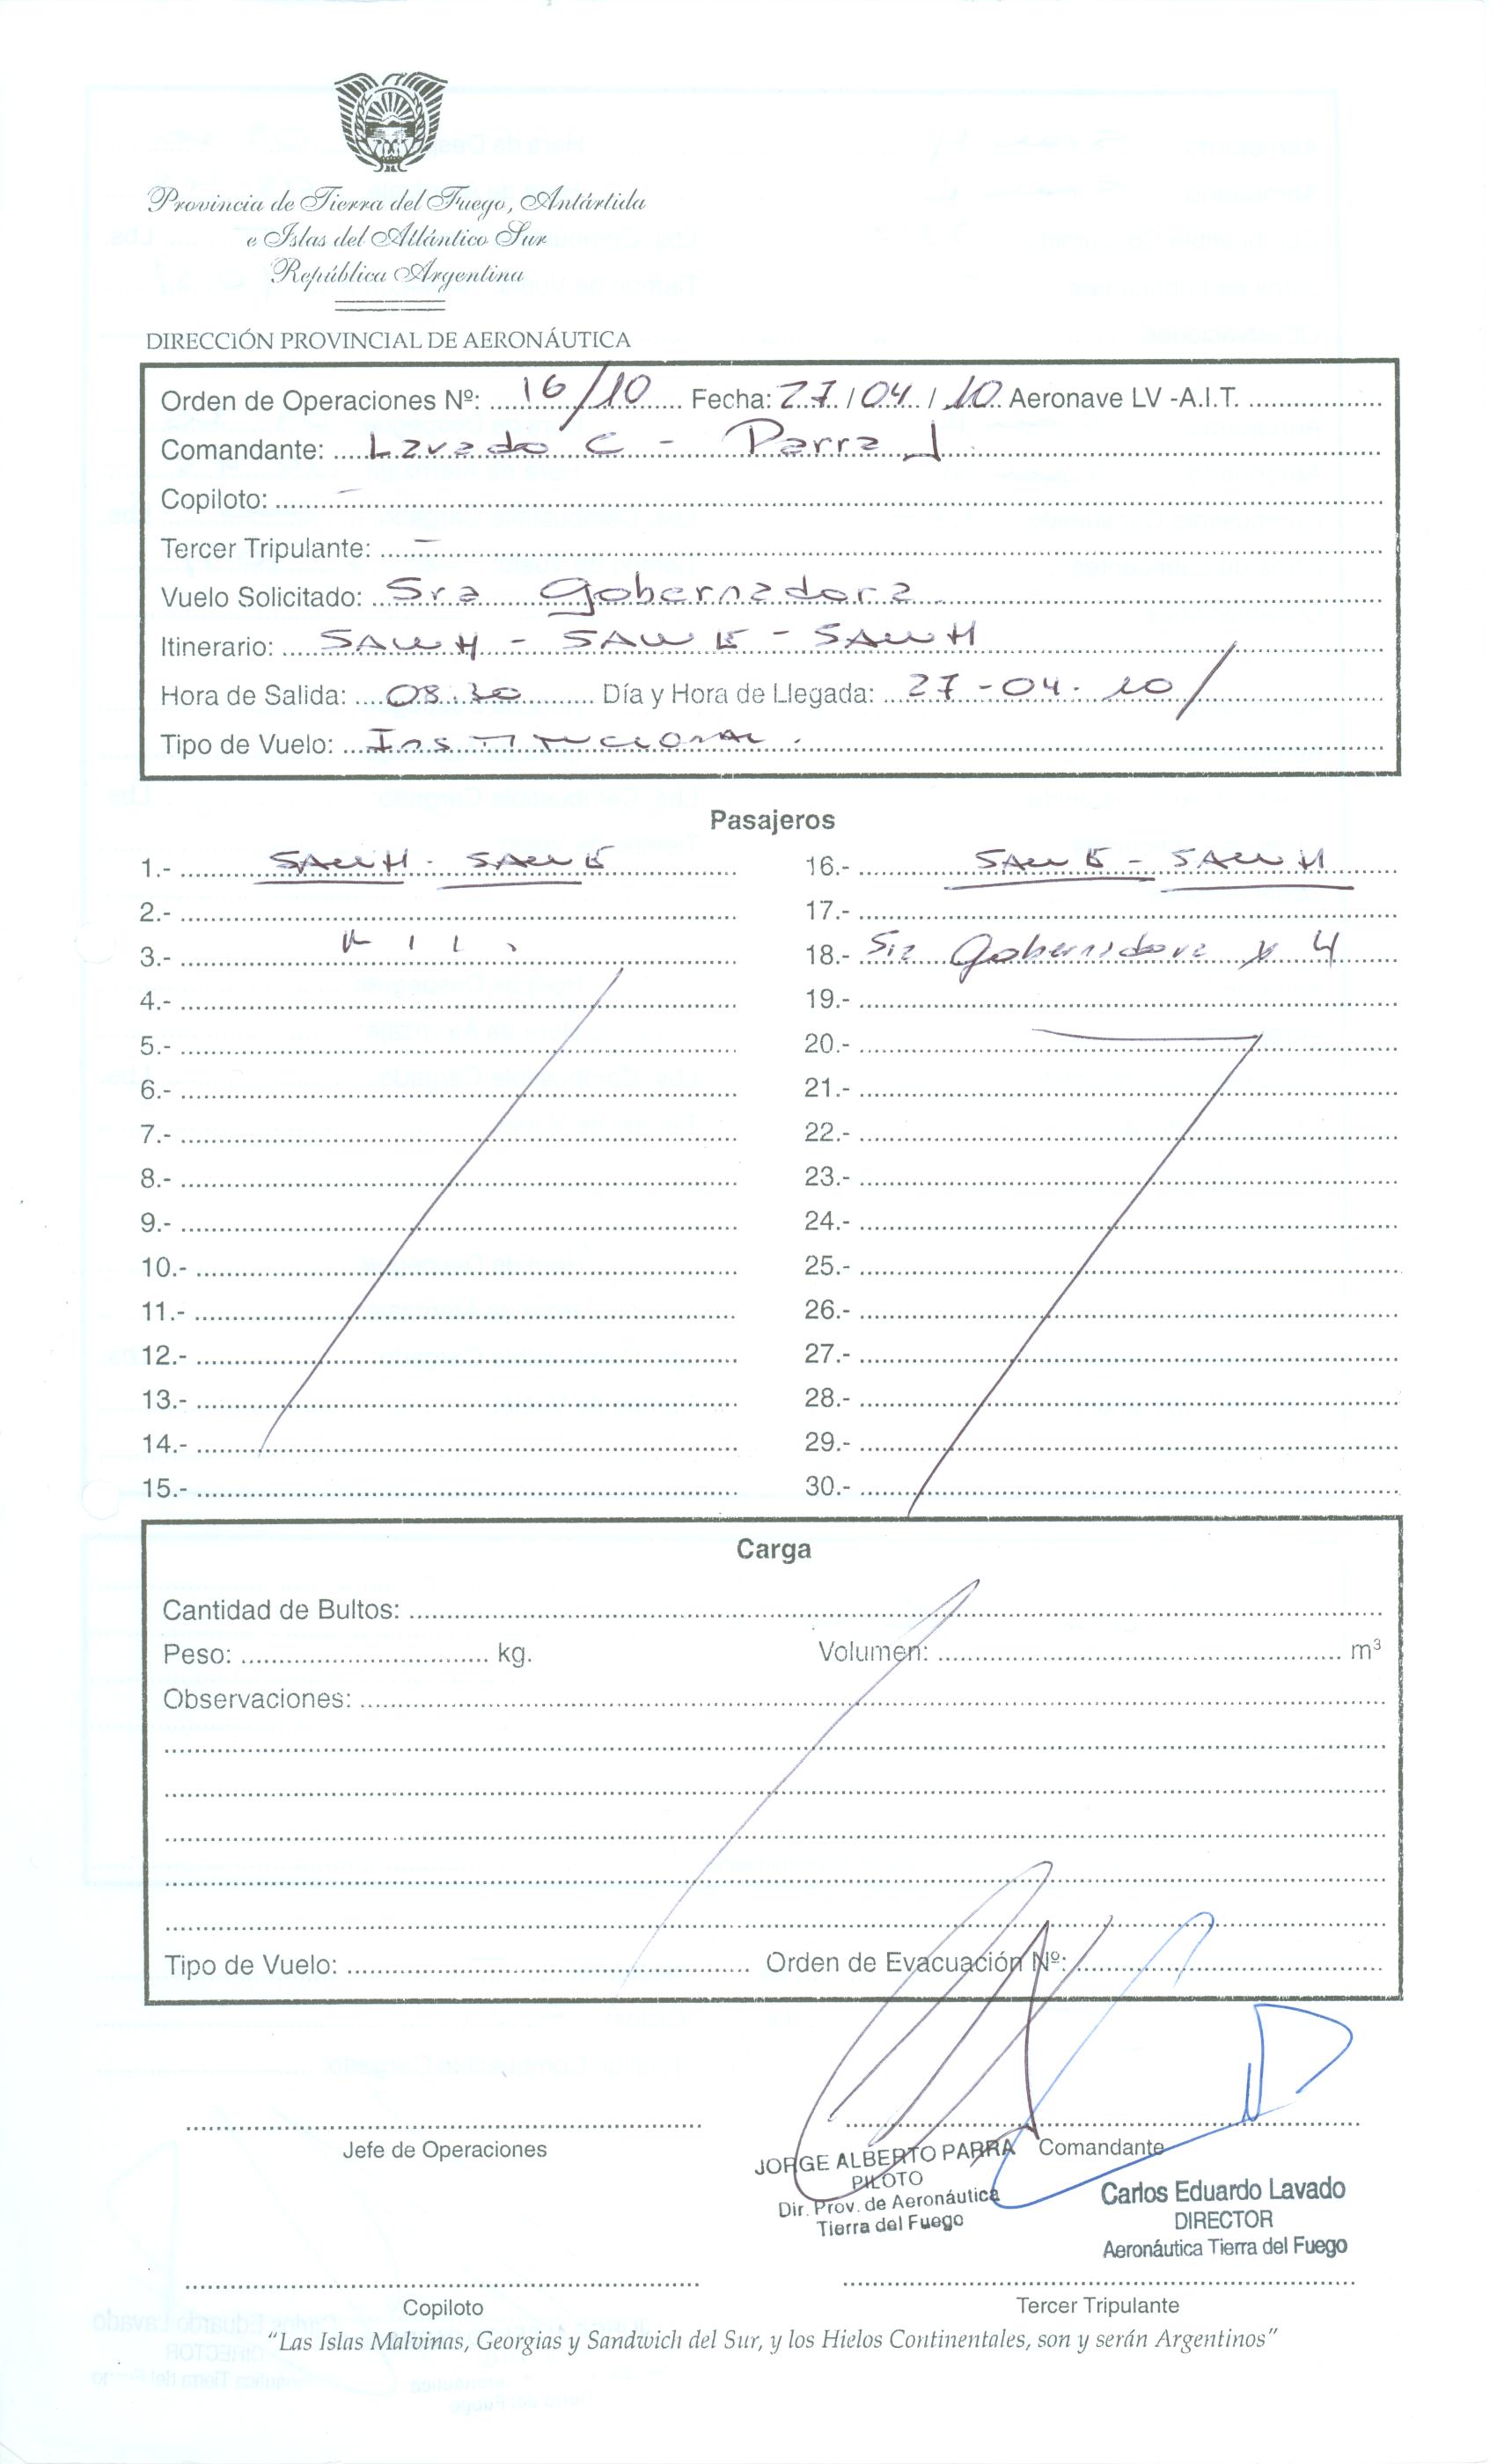 Provincia de Tierra del Fuego, Antártida
e Islas del Atlántico Sur
República Argentina
DIRECCIÓN PROVINCIAL DE AERONÁUTICA
Orden de Operaciones Nº: 16/10 Fecha: 27 / 04 / 10 Aeronave LV -A.I.T.
Comandante: Lavado C - Parra J.
Copiloto: -
Tercer Tripulante: -
Vuelo Solicitado: Sra Gobernadora.
Itinerario: SAWH - SAWE - SAWH
Hora de Salida: 08:30 Día y Hora de Llegada: 27-04-10/
Tipo de Vuelo: Institucional.
Pasajeros
1.- SAWH - SAWE
2.-
3.- Nil.
4.-
5.-
6.-
7.-
8.-
9.-
10.-
11.-
12.-
13.-
14.-
15.-
16.- SAWE - SAWH
17.-
18.- Sra Gobernadora x 4
19.-
20.-
21.-
22.-
23.-
24.-
25.-
26.-
27.-
28.-
29.-
30.-
Carga
Cantidad de Bultos:
Peso: kg. Volumen: m³
Observaciones:
Tipo de Vuelo: Orden de Evacuación Nº:
Jefe de Operaciones
Comandante
JORGE ALBERTO PARRA
PILOTO
Dir. Prov. de Aeronáutica
Tierra del Fuego
Carlos Eduardo Lavado
DIRECTOR
Aeronáutica Tierra del Fuego
Copiloto
Tercer Tripulante
"Las Islas Malvinas, Georgias y Sandwich del Sur, y los Hielos Continentales, son y serán Argentinos"